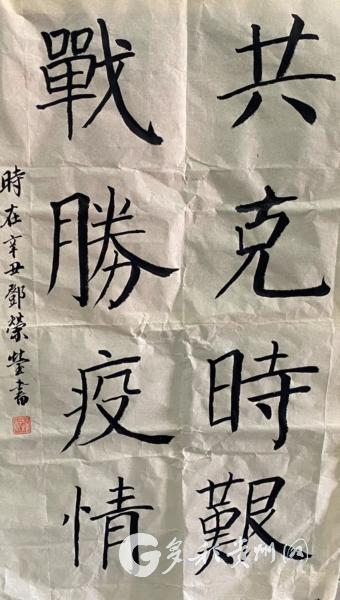 共克時艱
戰勝疫情
時在辛丑鄧榮瑩書
多彩贵州网